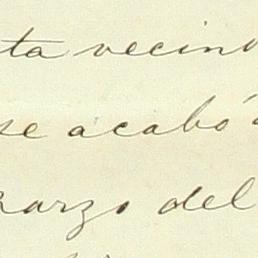 ta vecin
se acabó
marzo del